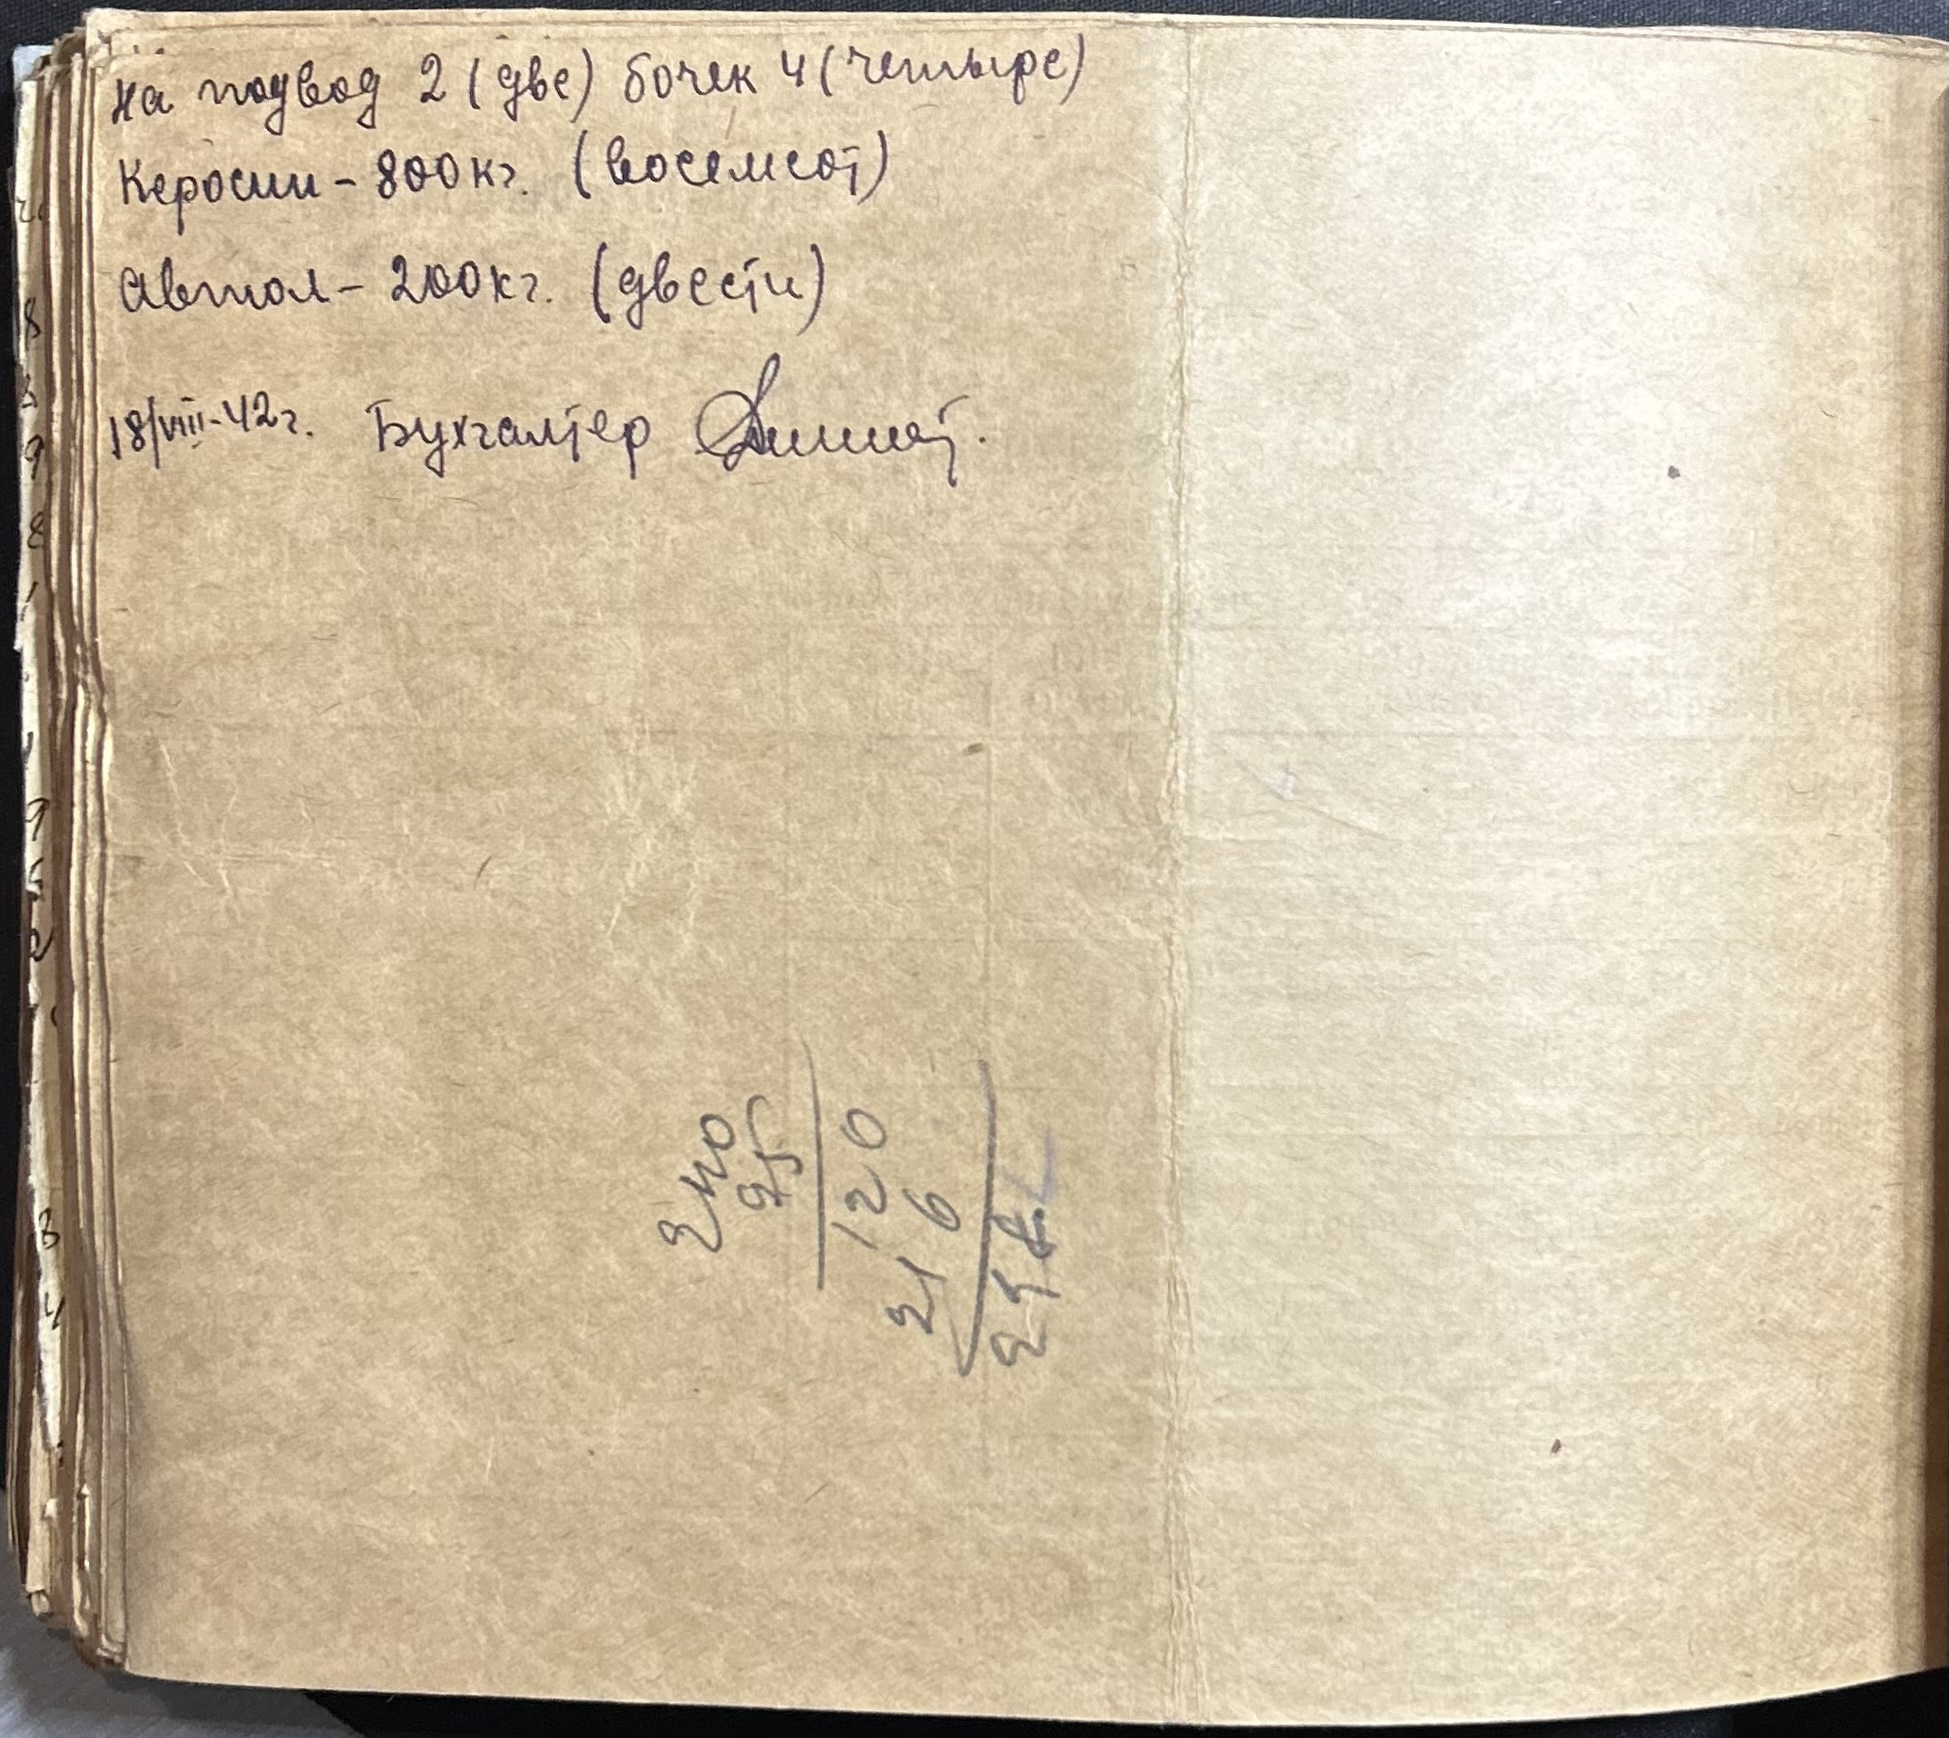 на подвод 2 (две) бочек 4 (четыре)
Керосин - 800 кг. (восемсот)
Автол - 200 кг. (двести)
18/VIII-42 г. Бухгалтер
240
95
120
216